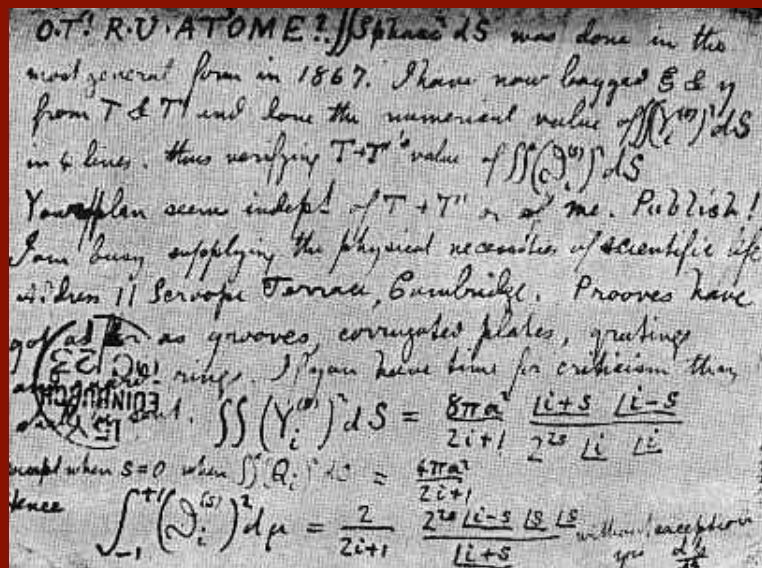 O.T! R.U. ATOME? ∬Spharc² dS was done in the
most general form in 1867. I have now bagged ξ & η
from T & T' and done the numerical value of ∬(Y_i^(s))² dS
in 4 lines. thus verifying T+T''s value of ∬(ϑ_i^(s))² dS
Your plan seems indept. of T + T' or of me. Publish!
I am busy supplying the physical necessities of scientific life
Address 11 Scroope Terrace, Cambridge. Prooves have
got as far as grooves, corrugated plates, gratings
rings. If you have time for criticism then
out. ∬(Y_i^(s))² dS = 8πa²/(2i+1) |i+s |i−s / 2^2s |i |i
except when s=0 when ∬(Q_i)² dS = 4πa²/(2i+1)
Hence ∫_−1^+1 (ϑ_i^(s))² dμ = 2/(2i+1) 2^2s |i−s |s |s / |i+s without exception
EDINBURGH